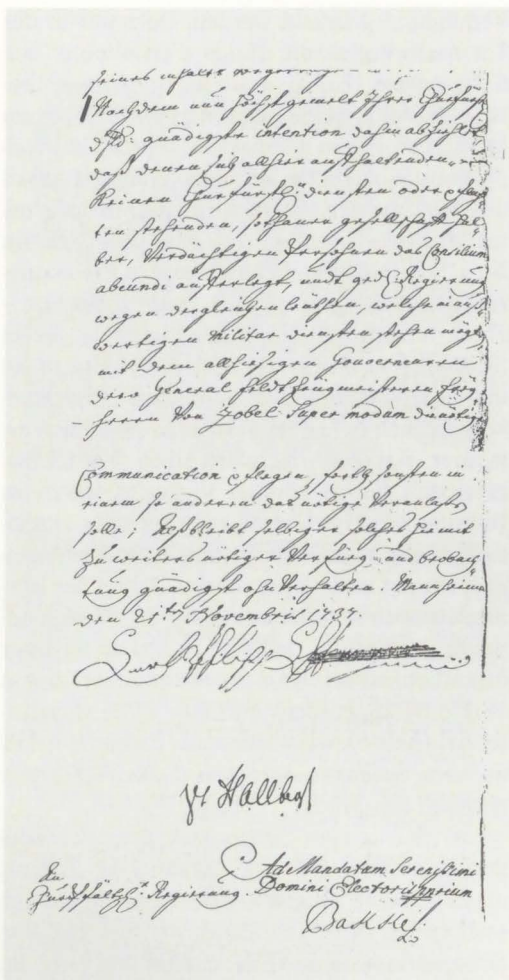 seines inhalts
Nachdem nun höchst gemelt Ihrer Churfürstl
dhlt: gnädigste intention dahin abziehlet
daß denen sich allhier aufhaltenden,
Keinen Churfürstl: diensten oder pflich
ten stehenden, sothaner gesellschafft hal
ber, Verdächtigen Persohnen das Consilium
abeundi aufferlegt, undt ged: Regierung
wegen dergleichen leüthen, welche in auß
wertigen Militar diensten stehen
mit dem allhiesigen Gouverneuren
dero General feldt Zeügmeisteren frey
herrn Von Zobel super modum die nötige
Communication pflegen, forth sonsten in
einem so anderen das nötige Veranlaßen
solle; Alß bleibt selbiger solches hiemit
zu weiters nötiger Verfüg- und beobach
tung gnädigst ohnVerhalten. Mannheim
den 21ten Novembris 1737.
Carl Philipp Churfürst
Vt Hallberg
Ad Mandatum Serenissimi
Domini Electoris proprium
An
Churpfältz. Regierung.
Bakkes